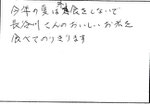 今年の夏は米食をしないで
長谷川さんのおいしいお茶を
食べてのりきります